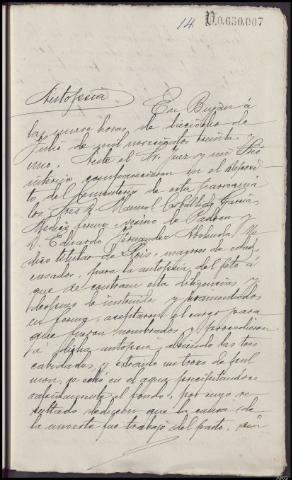 14 0.630.007
Autopsia. En Buján á
las nueve horas de dieciocho de
Junio de mil novecientos treinta y
uno. Ante el Sr. Juez y mi Se
cretario comparecieron en el depósi
to del Cementerio de esta parroquia
los Srs. D. Manuel García
Médico forense, vecino de Padrón y
D. Eduardo Fernandez Mé
dico titular de mayores de edad,
casados, para la autopsia del feto á
que se contraen estas diligencias y
despues de instruidos y juramentados
en forma, aceptaron el cargo para
que fueron nombrados y procedieron
á dicha autopsia abriendo las tres
cavidades, y extraido un trozo de pul
mon, se echó en el agua precipitandose
rapidamente al fondo, por cuyo re
sultado deducen que la causa de
la muerte fue trabajo del parto, sin